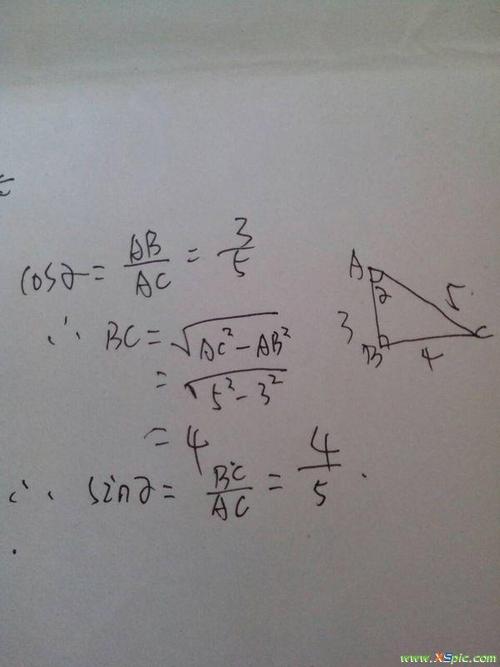 cosα = AB/AC = 3/5
∴ BC = √(AC² - AB²)
= √(5² - 3²)
= 4
∴ sinα = BC/AC = 4/5.
A
α
5
3
B
4
C
www.XSpic.com